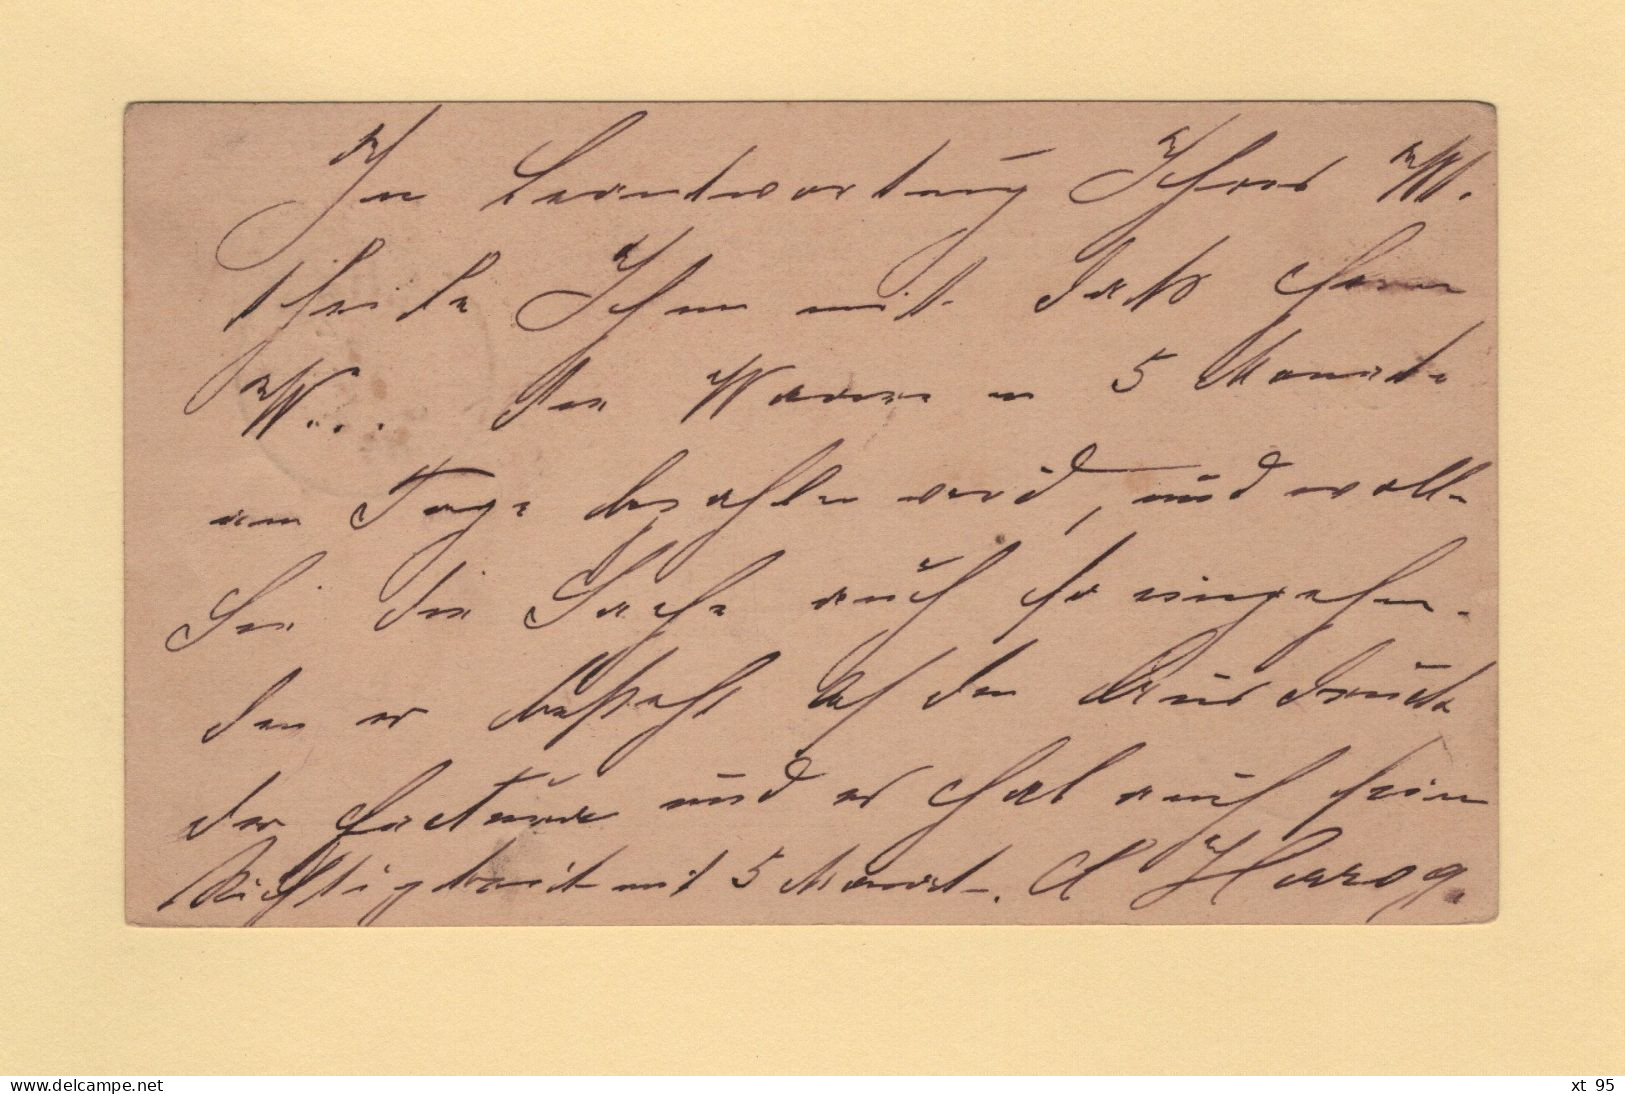 In beantwortung Ihres W.
theile Ihnen mit daß Herr
W... die Waare in 5 Monate
am Tage bezahlen wird, und wolle
Sie die Sache auch so eingehen.
den er besteht auf den
der Factura und er hat auch sein
Richtigkeit mit 5 Monat. A Herzog.
www.delcampe.net
xt 95